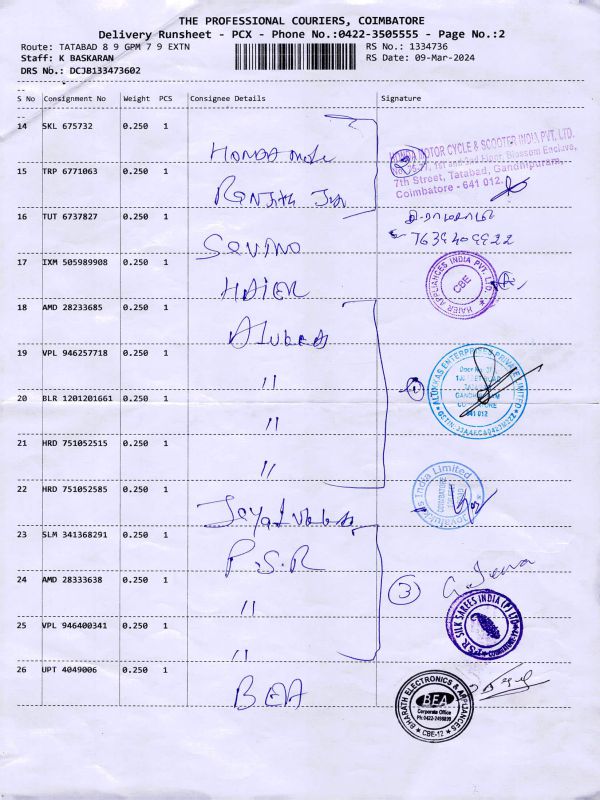 THE PROFESSIONAL COURIERS, COIMBATORE
Delivery Runsheet - PCX - Phone No.:0422-3505555 - Page No.:2
Route: TATABAD 8 9 GPM 7 9 EXTN
RS No.: 1334736
Staff: K BASKARAN
RS Date: 09-Mar-2024
DRS No.: DCJB133473602
S No Consignment No Weight PCS Consignee Details Signature
14 SKL 675732 0.250 1
HONDA
HONDA MOTOR CYCLE & SCOOTER INDIA PVT. LTD.
1st and 2nd Floor, Blossom Enclave,
7th Street, Tatabad, Gandhipuram,
Coimbatore - 641 012.
15 TRP 6771063 0.250 1
16 TUT 6737827 0.250 1
7639409922
17 IXM 505989908 0.250 1
HAIER
HAIER APPLIANCES INDIA PVT. LTD.
CBE
18 AMD 28233685 0.250 1
19 VPL 946257718 0.250 1
"
ALUKKAS ENTERPRISES PRIVATE LIMITED
641 012
20 BLR 1201201661 0.250 1
"
1
21 HRD 751052515 0.250 1
"
22 HRD 751052585 0.250 1
Joyalukkas India Limited
COIMBATORE
23 SLM 341368291 0.250 1
P.S.R
24 AMD 28333638 0.250 1
"
3
P.S.R. SILK SAREES INDIA (P) LTD
25 VPL 946400341 0.250 1
"
26 UPT 4049006 0.250 1
BEA
BHARATH ELECTRONICS & APPLIANCES
BEA
Corporate Office
CBE-12